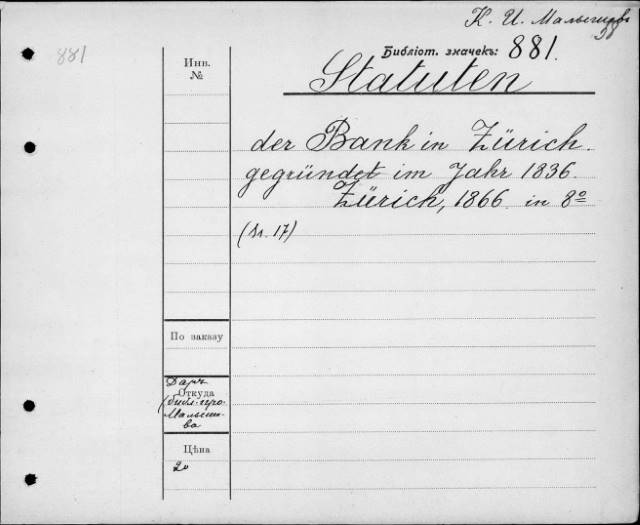 К. И. Малышевъ
98
881
Инв.
№
Библіот. значекъ: 881.
Statuten
der Bank in Zürich.
gegründet im Jahr 1836.
Zürich, 1866 in 8º
17)
По заказу
Даръ
Откуда
(библ. про.
Малыше-
ва
Цѣна
20